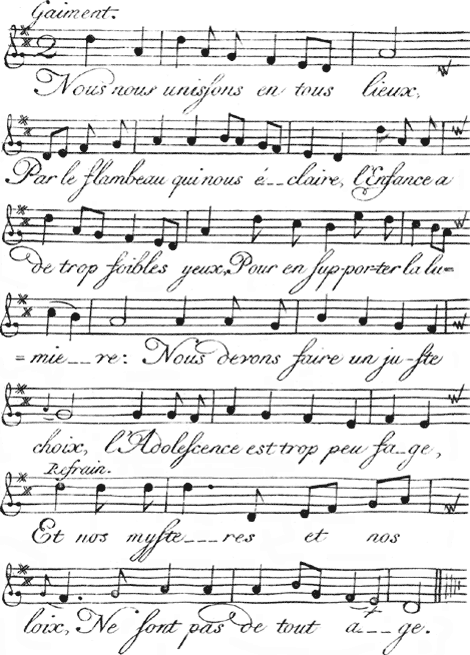 Gaiment.
2
Nous nous unissons en tous lieux,
Par le flambeau qui nous é__claire, l'Enfance a
de trop foibles yeux, Pour en supporter la lu=
=mie__re: Nous devons faire un ju-ste
choix, l'Adolescence est trop peu sa_ge,
Refrain.
Et nos myste___res et nos
loix, Ne sont pas de tout a___ge.